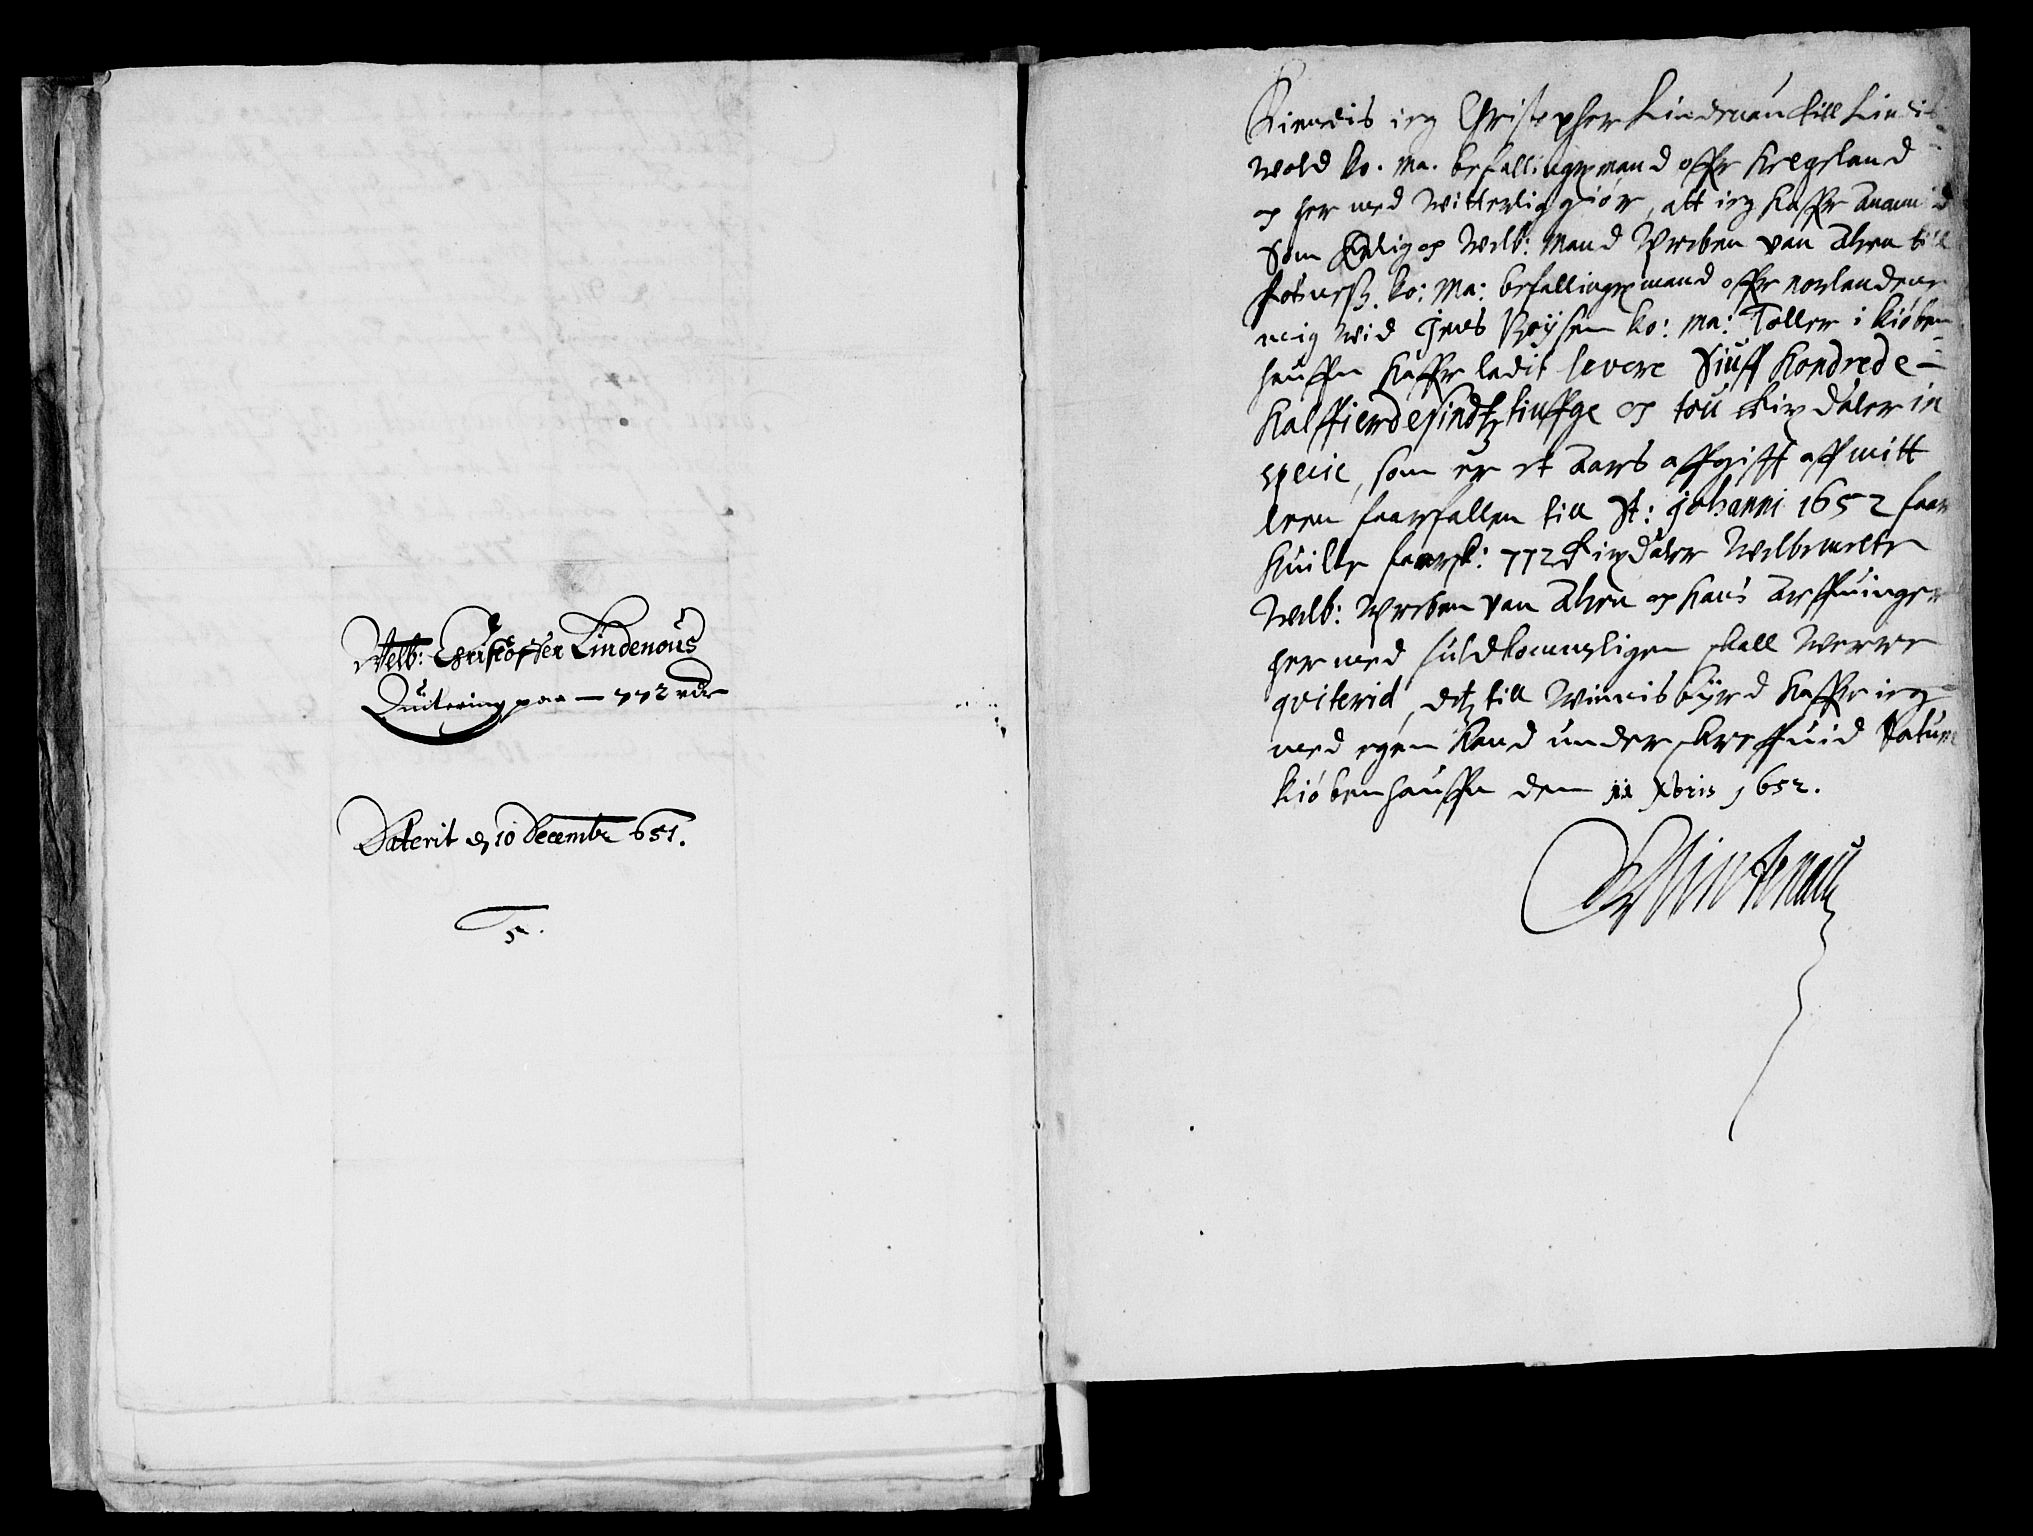 Welb: Christoffer Lindenous
Quitering paa — 772 rdr
Daterit d 10 Decembr 651.
5.
Kiendis ieg Christopher Lindenau till Lindis
wold ko. Ma. befallingsmand offr
og her med witterlig giör, att ieg haffr anammid
som Erlig og Welb: Mand Preben van Ahnen till
ko: Ma: befallingsmand offr norlandene
mig wid Jens ko: Ma: Toller i kiöben
hauffn haffr ladit levere Siuff Hondrede
Halffierdesindtztiuffge og tou Rix daler in
specie, som er et aars affgifft aff mitt
leen faarfallen till St: Johanni 1652 faar
huilke faarsk: 772 Rixdaler Welbemelte
Welb: Preben van Ahnen og hans arffuinger
her med fuldkommeligen skall werre
qviterid, detz till winnisbyrd haffr ieg
med egen Hand underskreffuid Datum
kiöbenhauffn den 11 Xbris 1652.
CLindenau